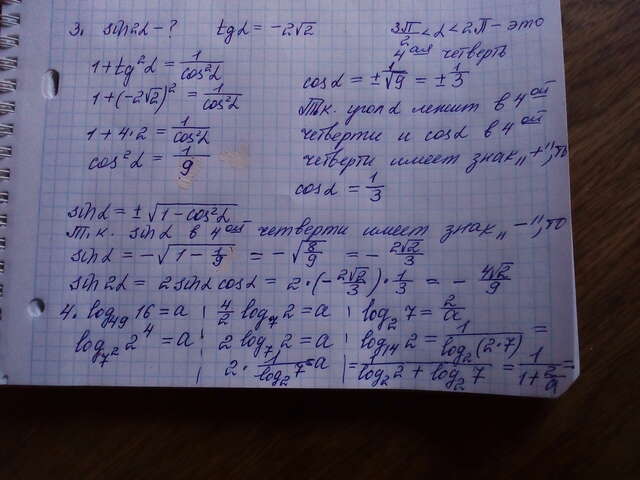 3. sin2α - ? tgα = -2√2 3π/2 < α < 2π - это
4ая четверть
1 + tg²α = 1/cos²α
cosα = ±√1/9 = ±1/3
1 + (-2√2)² = 1/cos²α
Т.к. угол α лежит в 4ой
1 + 4·2 = 1/cos²α
четверти и cosα в 4ой
cos²α = 1/9
четверти имеет знак „+", то
cosα = 1/3
sinα = ±√1 - cos²α
Т.к. sinα в 4ой четверти имеет знак „-", то
sinα = -√1 - 1/9 = -√8/9 = - 2√2/3
sin2α = 2sinα cosα = 2·(-2√2/3)·1/3 = - 4√2/9
4. log₄₉ 16 = a ; 4/2 log₇ 2 = a ; log₂ 7 = 2/a
log₇² 2⁴ = a ; 2 log₇ 2 = a ; log₁₄ 2 = 1/log₂(2·7) =
; 2 · 1/log₂ 7 = a | = 1/log₂ 2 + log₂ 7 = 1/1 + 2/a =